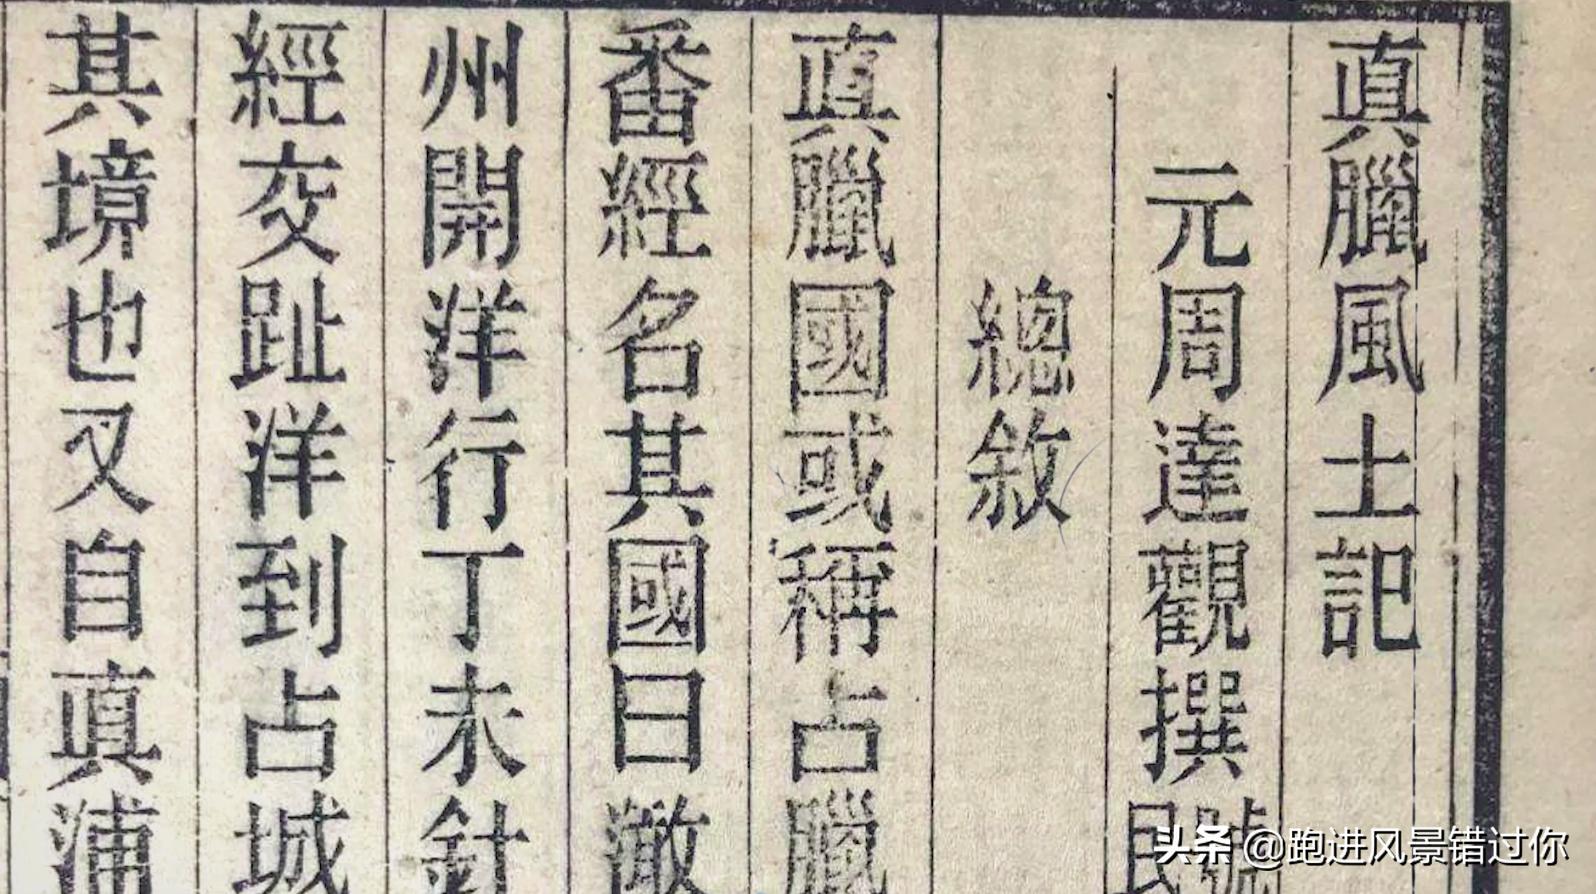 真臘風土記
元周達觀撰
總敘
真臘國或稱占臘
番經名其國曰澉
州開洋行丁未針
經交趾洋到占城
其境也又自真蒲
头条 @跑进风景错过你